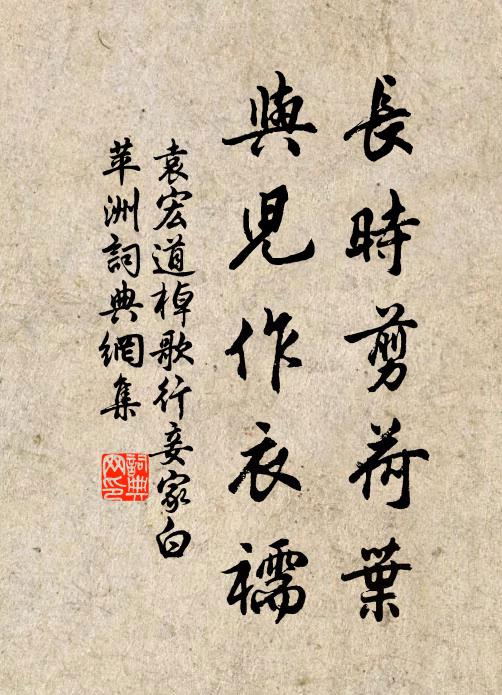 長時剪荷葉
與兒作衣襦
袁宏道棹歌行妾家白
苹洲詞典網集
詞典
网印